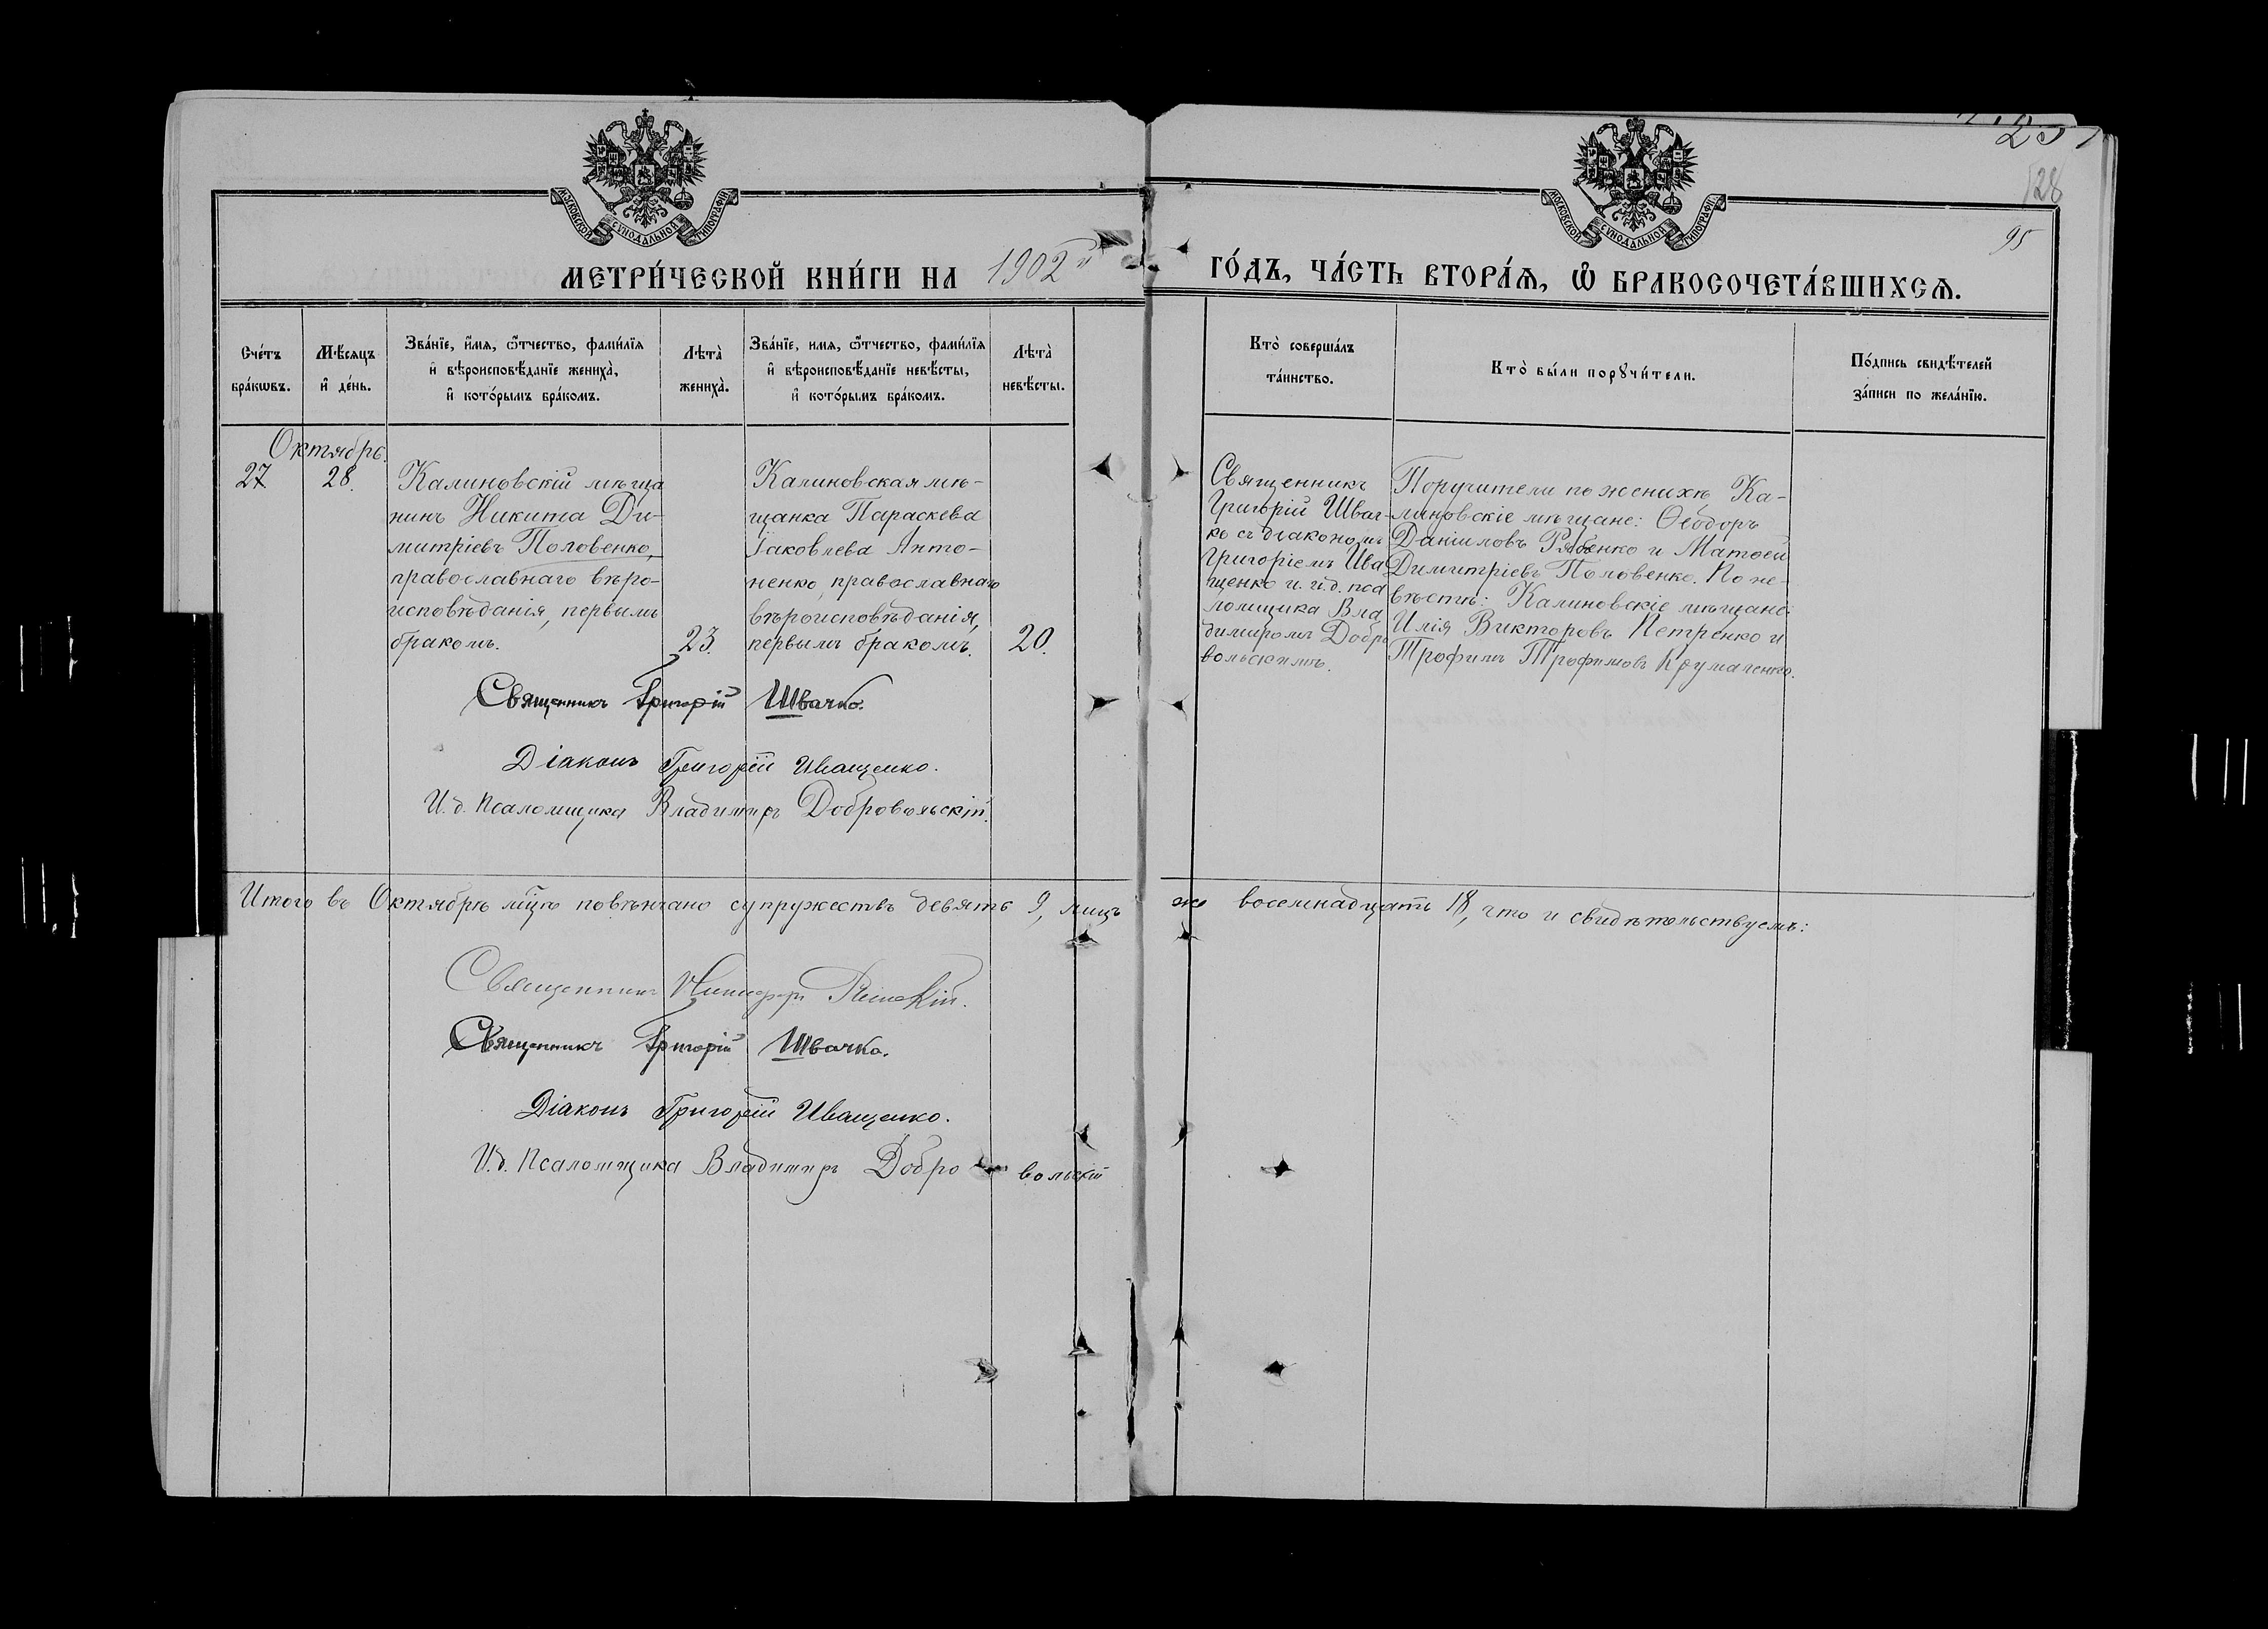 МОСКОВСКОЙ СУНОДАЛЬНОЙ ТИПОГРАФІИ
МОСКОВСКОЙ СУНОДАЛЬНОЙ ТИПОГРАФІИ
128
95
МЕТРИ́ЧЕСКОЙ КНИ́ГИ НА 1902й ГО́ДЪ, ЧА́СТЬ ВТОРА́Ѧ, Ѽ БРАКОСОЧЕТА́ВШИХСѦ.
Сче́тъ
бра́кѡвъ.
Мѣ́сяцъ
и҆ де́нь.
Зва́нїе, и҆́мя, ѻ҆́тчество, фами́лїя
и҆ вѣроисповѣ́данїе жениха̀,
и҆ кото́рымъ бра́комъ.
Лѣта̀
жениха̀.
Зва́нїе, имя, ѻ҆́тчество, фами́лїя
и҆ вѣроисповѣ́данїе невѣ́сты,
и҆ кото́рымъ бра́комъ.
Лѣта̀
невѣ́сты.
Кто̀ соверша́лъ
та́инство.
Кто̀ бы́ли порꙋчи́тели.
По́дпись свидѣ́телей
за́писи по жела́нїю.
Октябрь.
27
28.
Калиновскій мѣща
нинъ Никита Ди-
митріевъ Половенко,
православнаго вѣро-
исповѣданія, первымъ
бракомъ.
23.
Калиновская мѣ-
щанка Параскева
Іаковлева Анто-
ненко, православнаго
вѣроисповѣданія,
первымъ бракомъ.
20.
Священникъ
Григорій Швач-
ко съ діакономъ
Григоріемъ Ива
щенко и и.д. пса
ломщика Вла
димиромъ Добро
вольскимъ.
Поручители по женихѣ Ка-
линовскіе мѣщане: Ѳеодоръ
Даніиловъ Рябенко и Матѳей
Димитріевъ Половенко. По не-
вѣстѣ: Калиновскіе мѣщане:
Илія Викторовъ Петренко и
Трофимъ Трофимовъ
Священникъ Григорій Швачко.
Діаконъ Григорій Иващенко.
И.д. Псаломщика Владимиръ Добровольскій.
Итого въ Октябрѣ м͠цѣ повѣнчано супружествъ девять 9, лицъ же восемнадцать 18, что и свидѣтельствуемъ:
Священникъ
Священникъ Григорій Швачко.
Діаконъ Григорій Иващенко.
И.д. Псаломщика Владимиръ Добровольскій